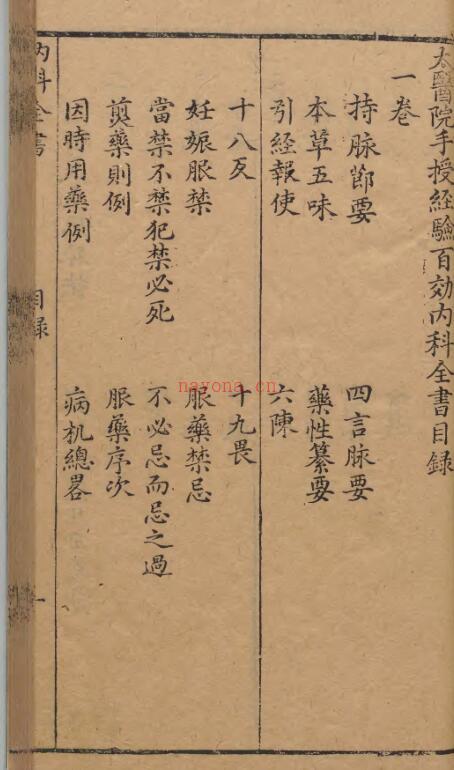 太醫院手授經驗百効内科全書目録
一卷
持脉節要 四言脉要
本草五味 藥性纂要
引経報使 六陳
十八反 十九畏
妊娠服禁 服藥禁忌
當禁不禁犯禁必死 不必忌而忌之過
煎藥則例 服藥序次
因時用藥例 病机總畧
内科全書 目録 一
nayona.cn